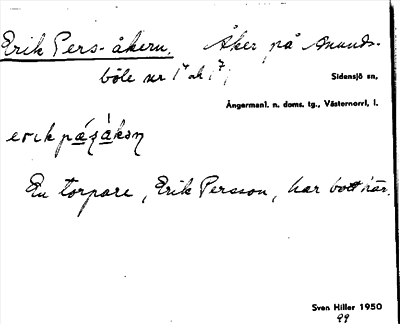 Erik Pers-åkern. Åker på Anunds-
böle nr 1⁴ ok 1⁷,
Sidensjö sn,
Ångermanl. n. doms. tg., Västernorrl. l.
En torpare, Erik Persson, har bott här.
Sven Hiller 1950
99